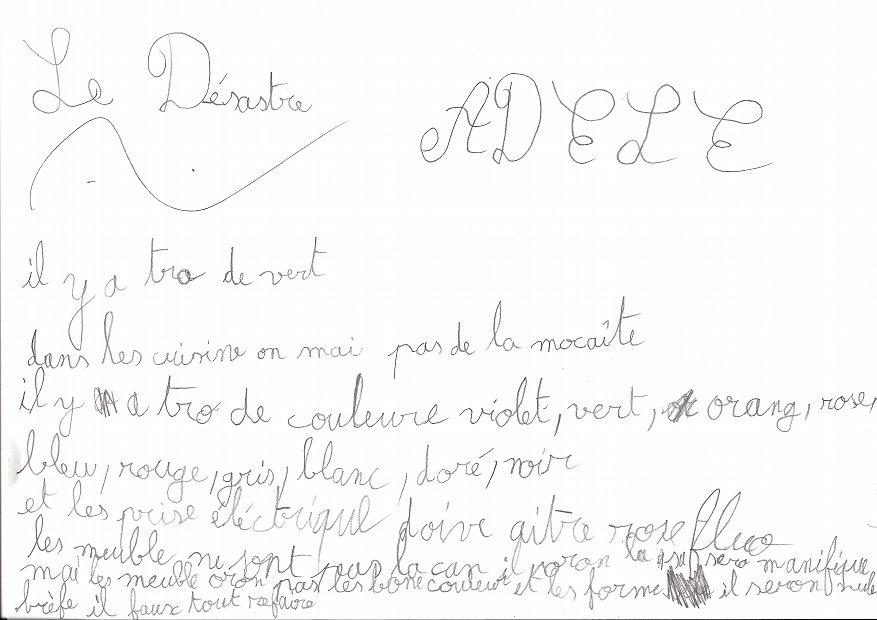 Le Désastre
ADELE
il y a tro de vert
dans les cuisine on mai pas de la mocaite
il y a tro de couleure violet, vert, orang, rose,
bleu, rouge, gris, blanc, doré, noir
et les prise électrique doive aitre rose fluo
les meuble ne sont pas la can il voron la sero manifique
mai les meuble oron pas les bone couleur et les forme il seron nule
brèfe il faux tout refaire